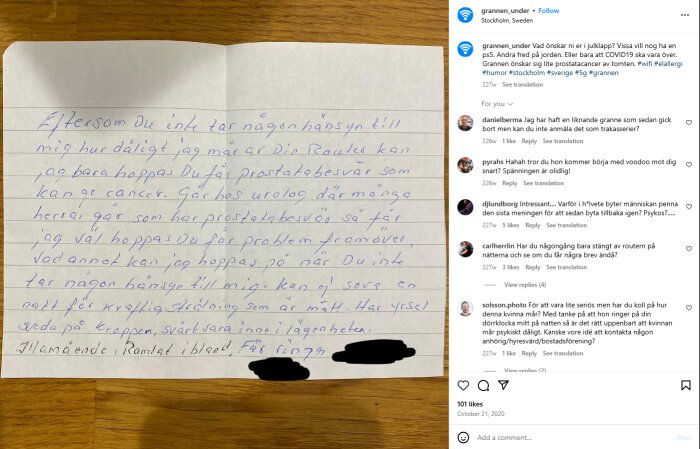 Eftersom Du inte tar någon hänsyn till
mig hur dåligt jag mår av Din Router kan
jag bara hoppas Du får prostatabesvär som
kan ge cancer. Går hos urolog där många
herrar går som har prostatabesvär så får
jag väl hoppas Du får problem framöver,
vad annat kan jag hoppas på när Du inte
tar någon hänsyn till mig. kan ej sova en
natt för kraftig strålning som är mätt. Har yrsel
sveda på kroppen, svårt vara inne i lägenheten.
Illamående, Ramlat i bland, Får ringa
grannen_under • Follow
Stockholm, Sweden
grannen_under Vad önskar ni er i julklapp? Vissa vill nog ha en
ps5. Andra fred på jorden. Eller bara att COVID19 ska vara över.
Grannen önskar sig lite prostatacancer av tomten. #wifi #elallergi
#humor #stockholm #sverige #5g #grannen
227w See translation
For you
danielberma Jag har haft en liknande granne som sedan gick
bort men kan du inte anmäla det som trakasserier?
226w 1 like Reply See translation
pyrahs Hahah tror du hon kommer börja med voodoo mot dig
snart? Spänningen är olidlig!
226w Reply See translation
djlundborg Intressant.... Varför i h*lvete byter människan penna
den sista meningen för att sedan byta tillbaka igen? Psykos?....
227w 5 likes Reply See translation
carlherrlin Har du någongång bara stängt av routern på
nätterna och se om du får några brev ändå?
227w 3 likes Reply See translation
View replies (4)
solsson.photo För att vara lite seriös men har du koll på hur
denna kvinna mår? Med tanke på att hon ringer på din
dörrklocka mitt på natten så är det rätt uppenbart att kvinnan
mår psykiskt dåligt. Kanske vore idé att kontakta någon
anhörig/hyresvärd/bostadsförening?
227w 1 like Reply See translation
View replies (2)
101 likes
October 21, 2020
Add a comment...
Post